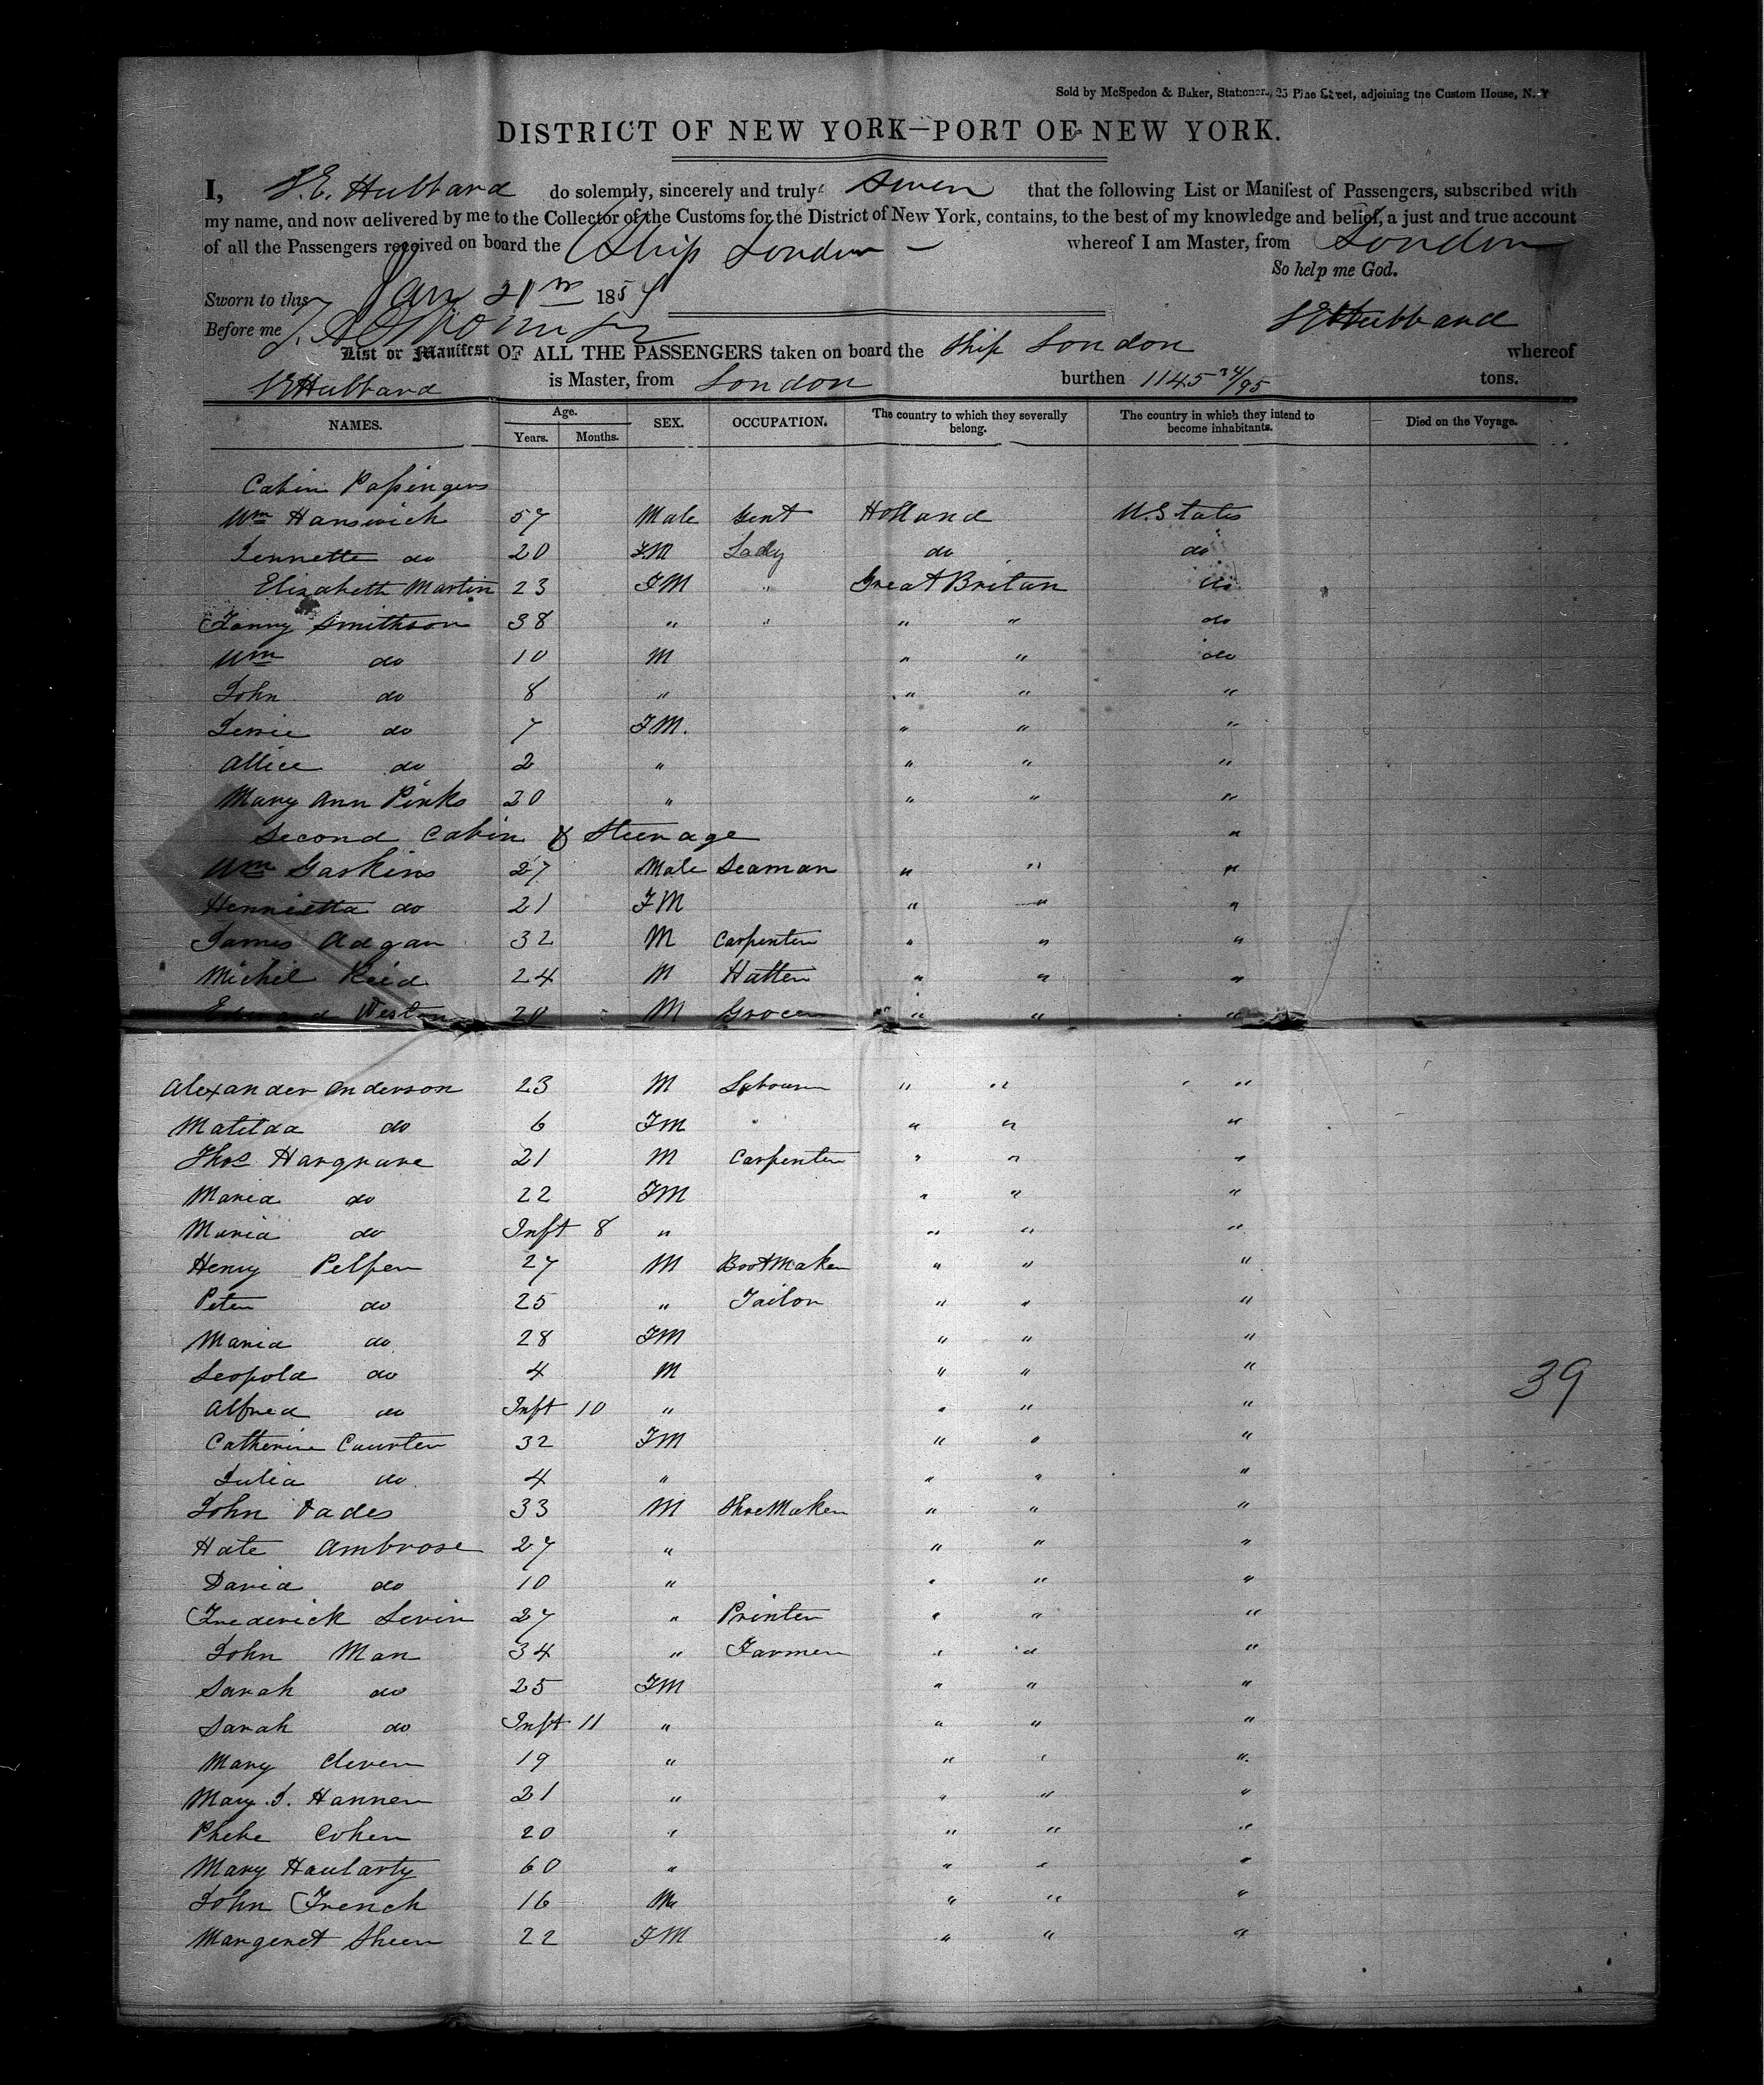 Sold by McSpedon & Baker, Stationers, 25 Pine Street, adjoining the Custom House, N. Y
DISTRICT OF NEW YORK—PORT OF NEW YORK.
I, F.E. Hubbard do solemnly, sincerely and truly swear that the following List or Manifest of Passengers, subscribed with
my name, and now delivered by me to the Collector of the Customs for the District of New York, contains, to the best of my knowledge and belief, a just and true account
of all the Passengers received on board the Ship London — whereof I am Master, from London
So help me God.
Sworn to this Jany 21st 1854
Before me Hubbard
List or Manifest OF ALL THE PASSENGERS taken on board the Ship London whereof
Hubbard is Master, from London burthen 1145 24/95 tons.
NAMES. Age. Years. Months. SEX. OCCUPATION. The country to which they severally belong. The country in which they intend to become inhabitants. Died on the Voyage.
Cabin Passingers
Wm Hanswich 57 Male Gent Holland U.States
Jennette do 20 FM Lady do do
Elizabeth Martin 23 FM " Great Britan do
Fanny Smithson 38 " " " " do
Wm do 10 M " " do
John do 8 " " " "
Jessie do 7 FM. " " "
Allice do 2 " " " "
Mary Ann Pinks 20 " " " "
Second Cabin & Steerage "
Wm Gaskins 27 Male Seaman " " "
Henrietta do 21 FM " " "
James Adgan 32 M Carpenter " " "
Michel Reid 24 M Hatter " " "
Edward Weston 20 M Grocer " " "
Alexander Anderson 23 M Labourer " " "
Matilda do 6 FM " " "
Thos Hargrave 21 M Carpenter " " "
Maria do 22 FM " " "
Maria do Inft 8 " " " "
Henry Pelfer 27 M BootMaker " " "
Peter do 25 " Tailor " " "
Maria do 28 FM " " "
Leopold do 4 M " " "
Alfred do Inft 10 " " " "
Catherine Courter 32 FM " " "
Julia do 4 " " " "
John 33 M ShoeMaker " " "
Hate Ambrose 27 " " " "
David do 10 " " " "
Frederick Levin 27 " Printer " " "
John Man 34 " Farmer " " "
Sarah do 25 FM " " "
Sarah do Inft 11 " " " "
Mary Cleven 19 " " " "
Mary J. Hanner 21 " " " "
Phebe Cohen 20 " " " "
Mary Haularty 60 " " " "
John French 16 M " " "
Margeret Sheen 22 FM " " "
39